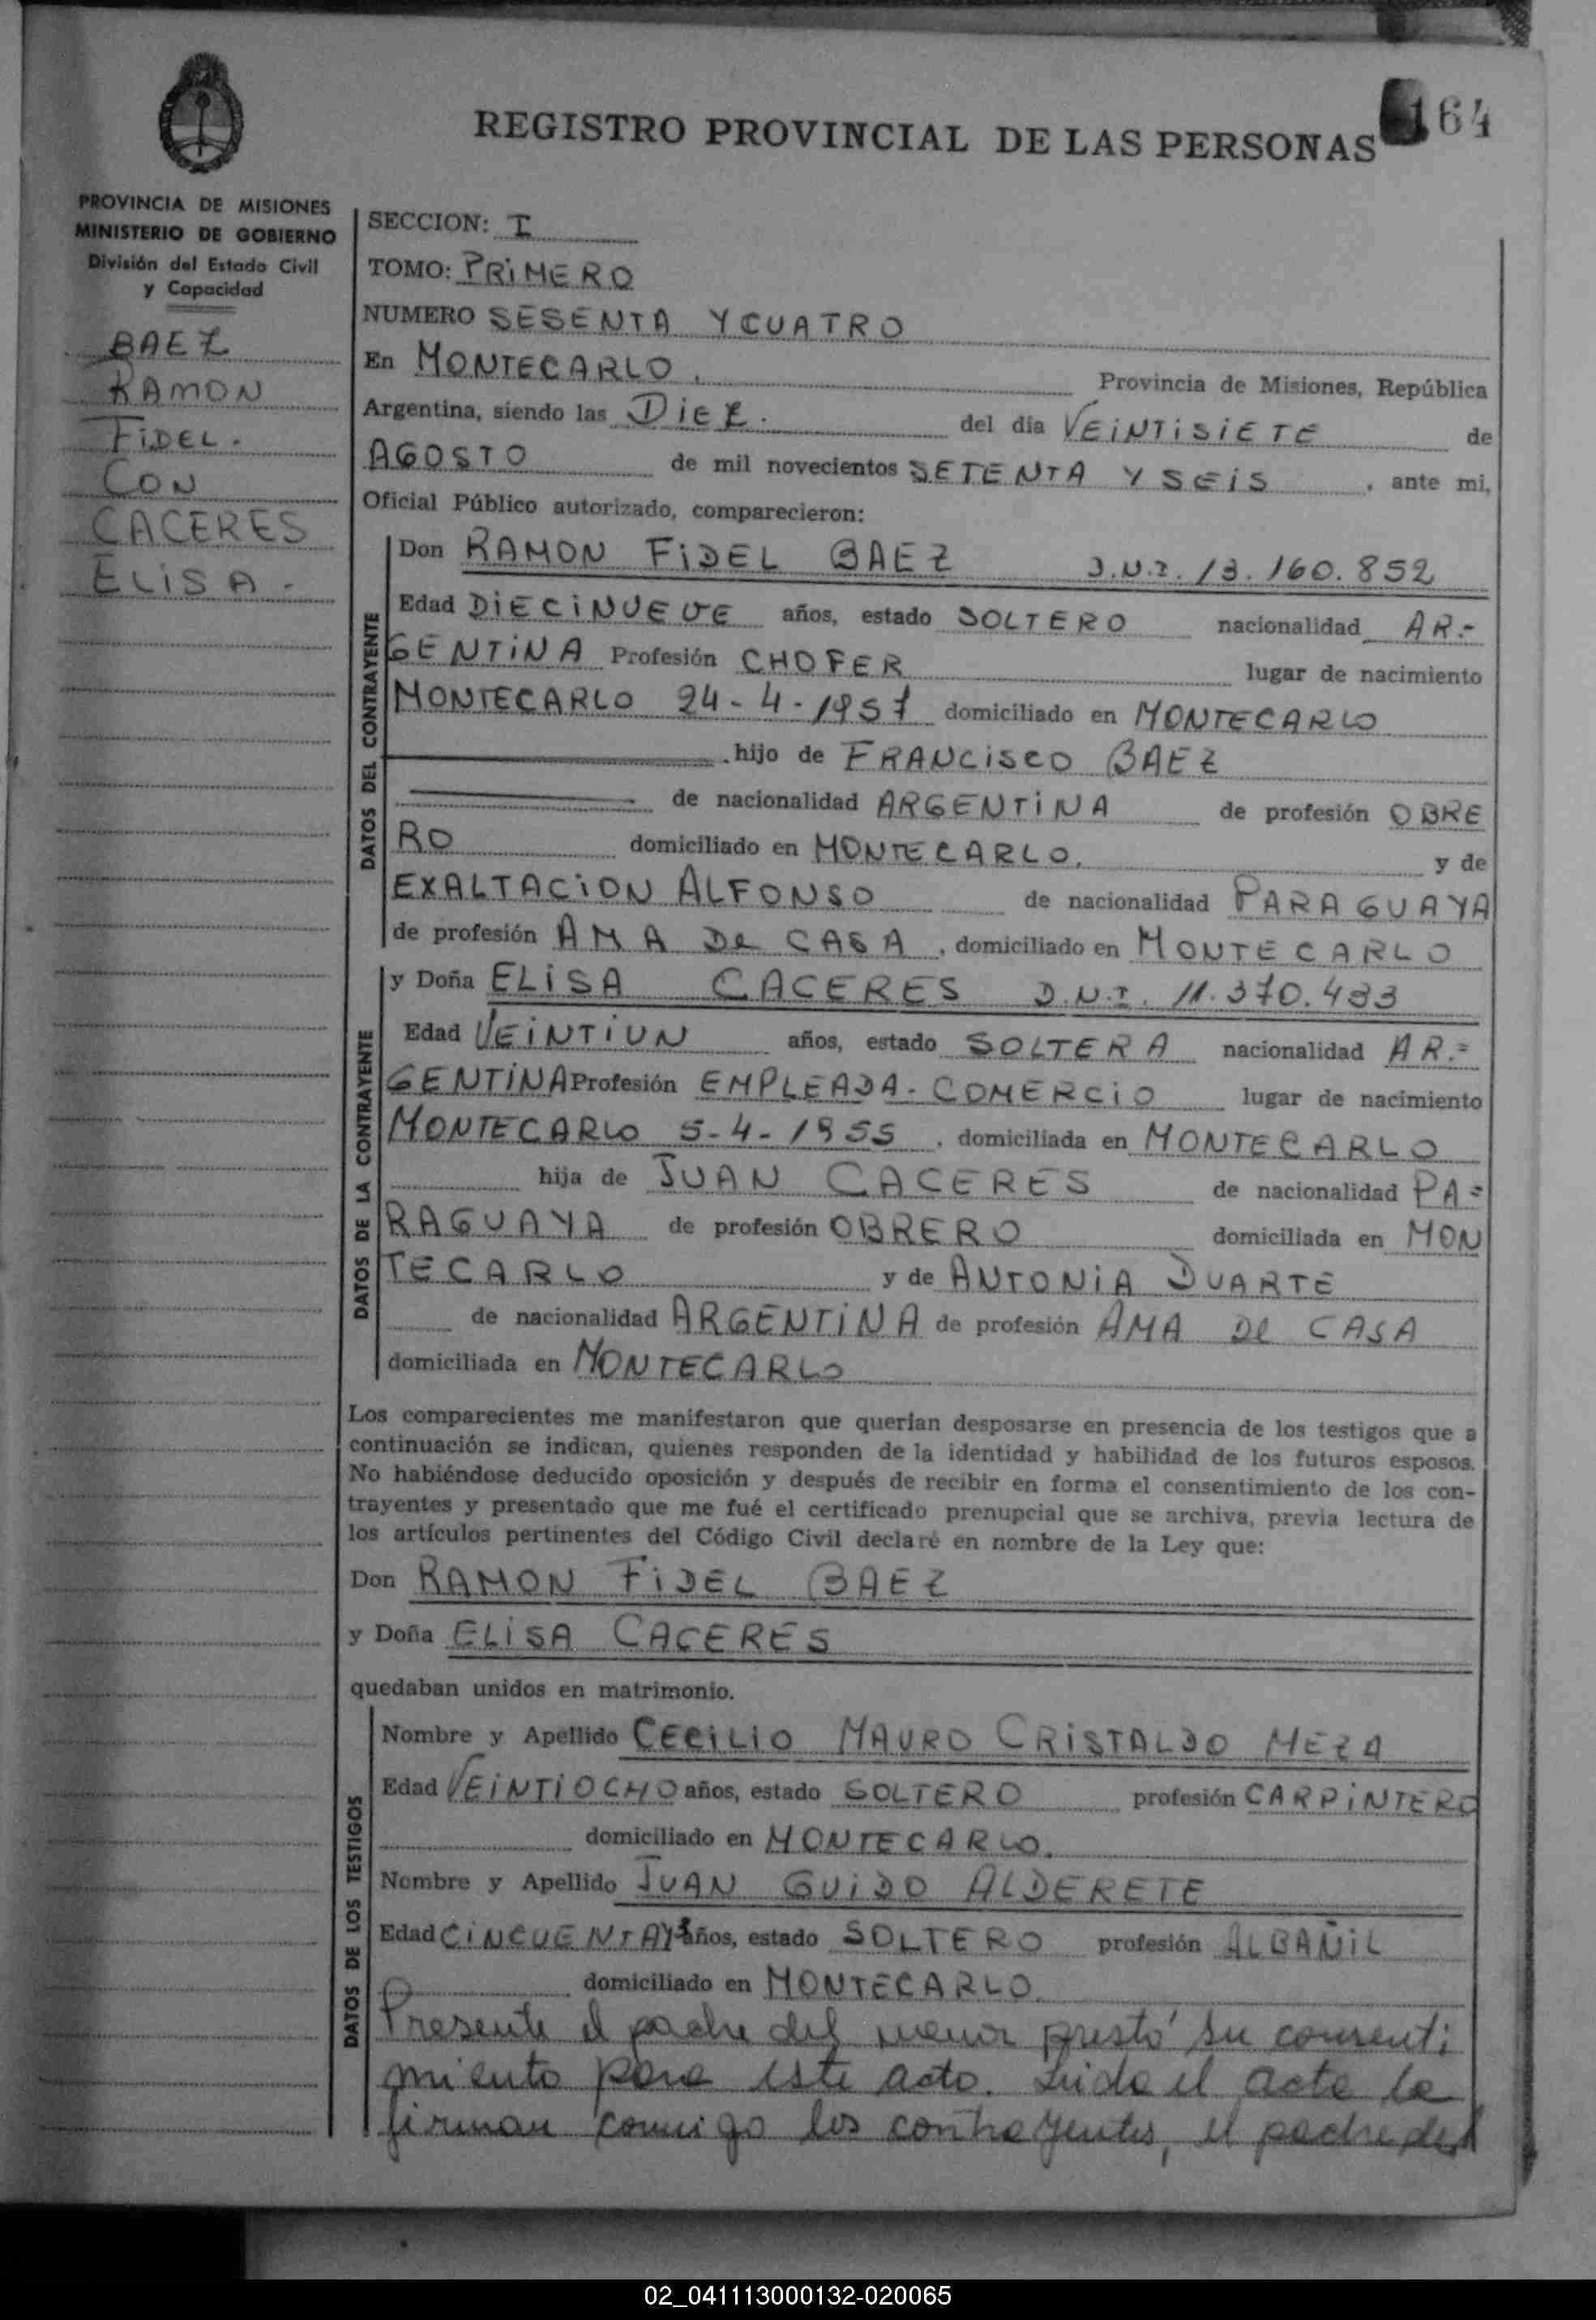 REGISTRO PROVINCIAL DE LAS PERSONAS
164
PROVINCIA DE MISIONES
MINISTERIO DE GOBIERNO
División del Estado Civil
y Capacidad
BAEZ
RAMON
FIDEL.
CON
CACERES
ELISA.
SECCION: I
TOMO: PRIMERO
NUMERO SESENTA Y CUATRO
En MONTECARLO, Provincia de Misiones, República
Argentina, siendo las DIEZ. del día VEINTISIETE de
AGOSTO de mil novecientos SETENTA Y SEIS, ante mi,
Oficial Público autorizado, comparecieron:
DATOS DEL CONTRAYENTE
Don RAMON FIDEL BAEZ D.N.I. 13.160.852
Edad DIECINUEVE años, estado SOLTERO nacionalidad AR.-
GENTINA Profesión CHOFER lugar de nacimiento
MONTECARLO 24-4-1957 domiciliado en MONTECARLO
hijo de FRANCISCO BAEZ
de nacionalidad ARGENTINA de profesión OBRE
RO domiciliado en MONTECARLO, y de
EXALTACION ALFONSO de nacionalidad PARAGUAYA
de profesión AMA DE CASA, domiciliado en MONTECARLO
DATOS DE LA CONTRAYENTE
y Doña ELISA CACERES D.N.I. 11.370.433
Edad VEINTIUN años, estado SOLTERA nacionalidad AR.=
GENTINA Profesión EMPLEADA-COMERCIO lugar de nacimiento
MONTECARLO 5-4-1955, domiciliada en MONTECARLO
hija de JUAN CACERES de nacionalidad PA=
RAGUAYA de profesión OBRERO domiciliada en MON
TECARLO y de ANTONIA DUARTE
de nacionalidad ARGENTINA de profesión AMA DE CASA
domiciliada en MONTECARLO
Los comparecientes me manifestaron que querían desposarse en presencia de los testigos que a
continuación se indican, quienes responden de la identidad y habilidad de los futuros esposos.
No habiéndose deducido oposición y después de recibir en forma el consentimiento de los con-
trayentes y presentado que me fué el certificado prenupcial que se archiva, previa lectura de
los artículos pertinentes del Código Civil declaré en nombre de la Ley que:
Don RAMON FIDEL BAEZ
y Doña ELISA CACERES
quedaban unidos en matrimonio.
DATOS DE LOS TESTIGOS
Nombre y Apellido CECILIO MAURO CRISTALDO MEZA
Edad VEINTIOCHO años, estado SOLTERO profesión CARPINTERO
domiciliado en MONTECARLO.
Nombre y Apellido JUAN GUIDO ALDERETE
Edad CINCUENTA Y años, estado SOLTERO profesión ALBAÑIL
domiciliado en MONTECARLO.
Presente el padre del menor prestó su consenti
miento para este acto. Leida el acta la
firman conmigo los contrayentes, el padre del
02_041113000132-020065